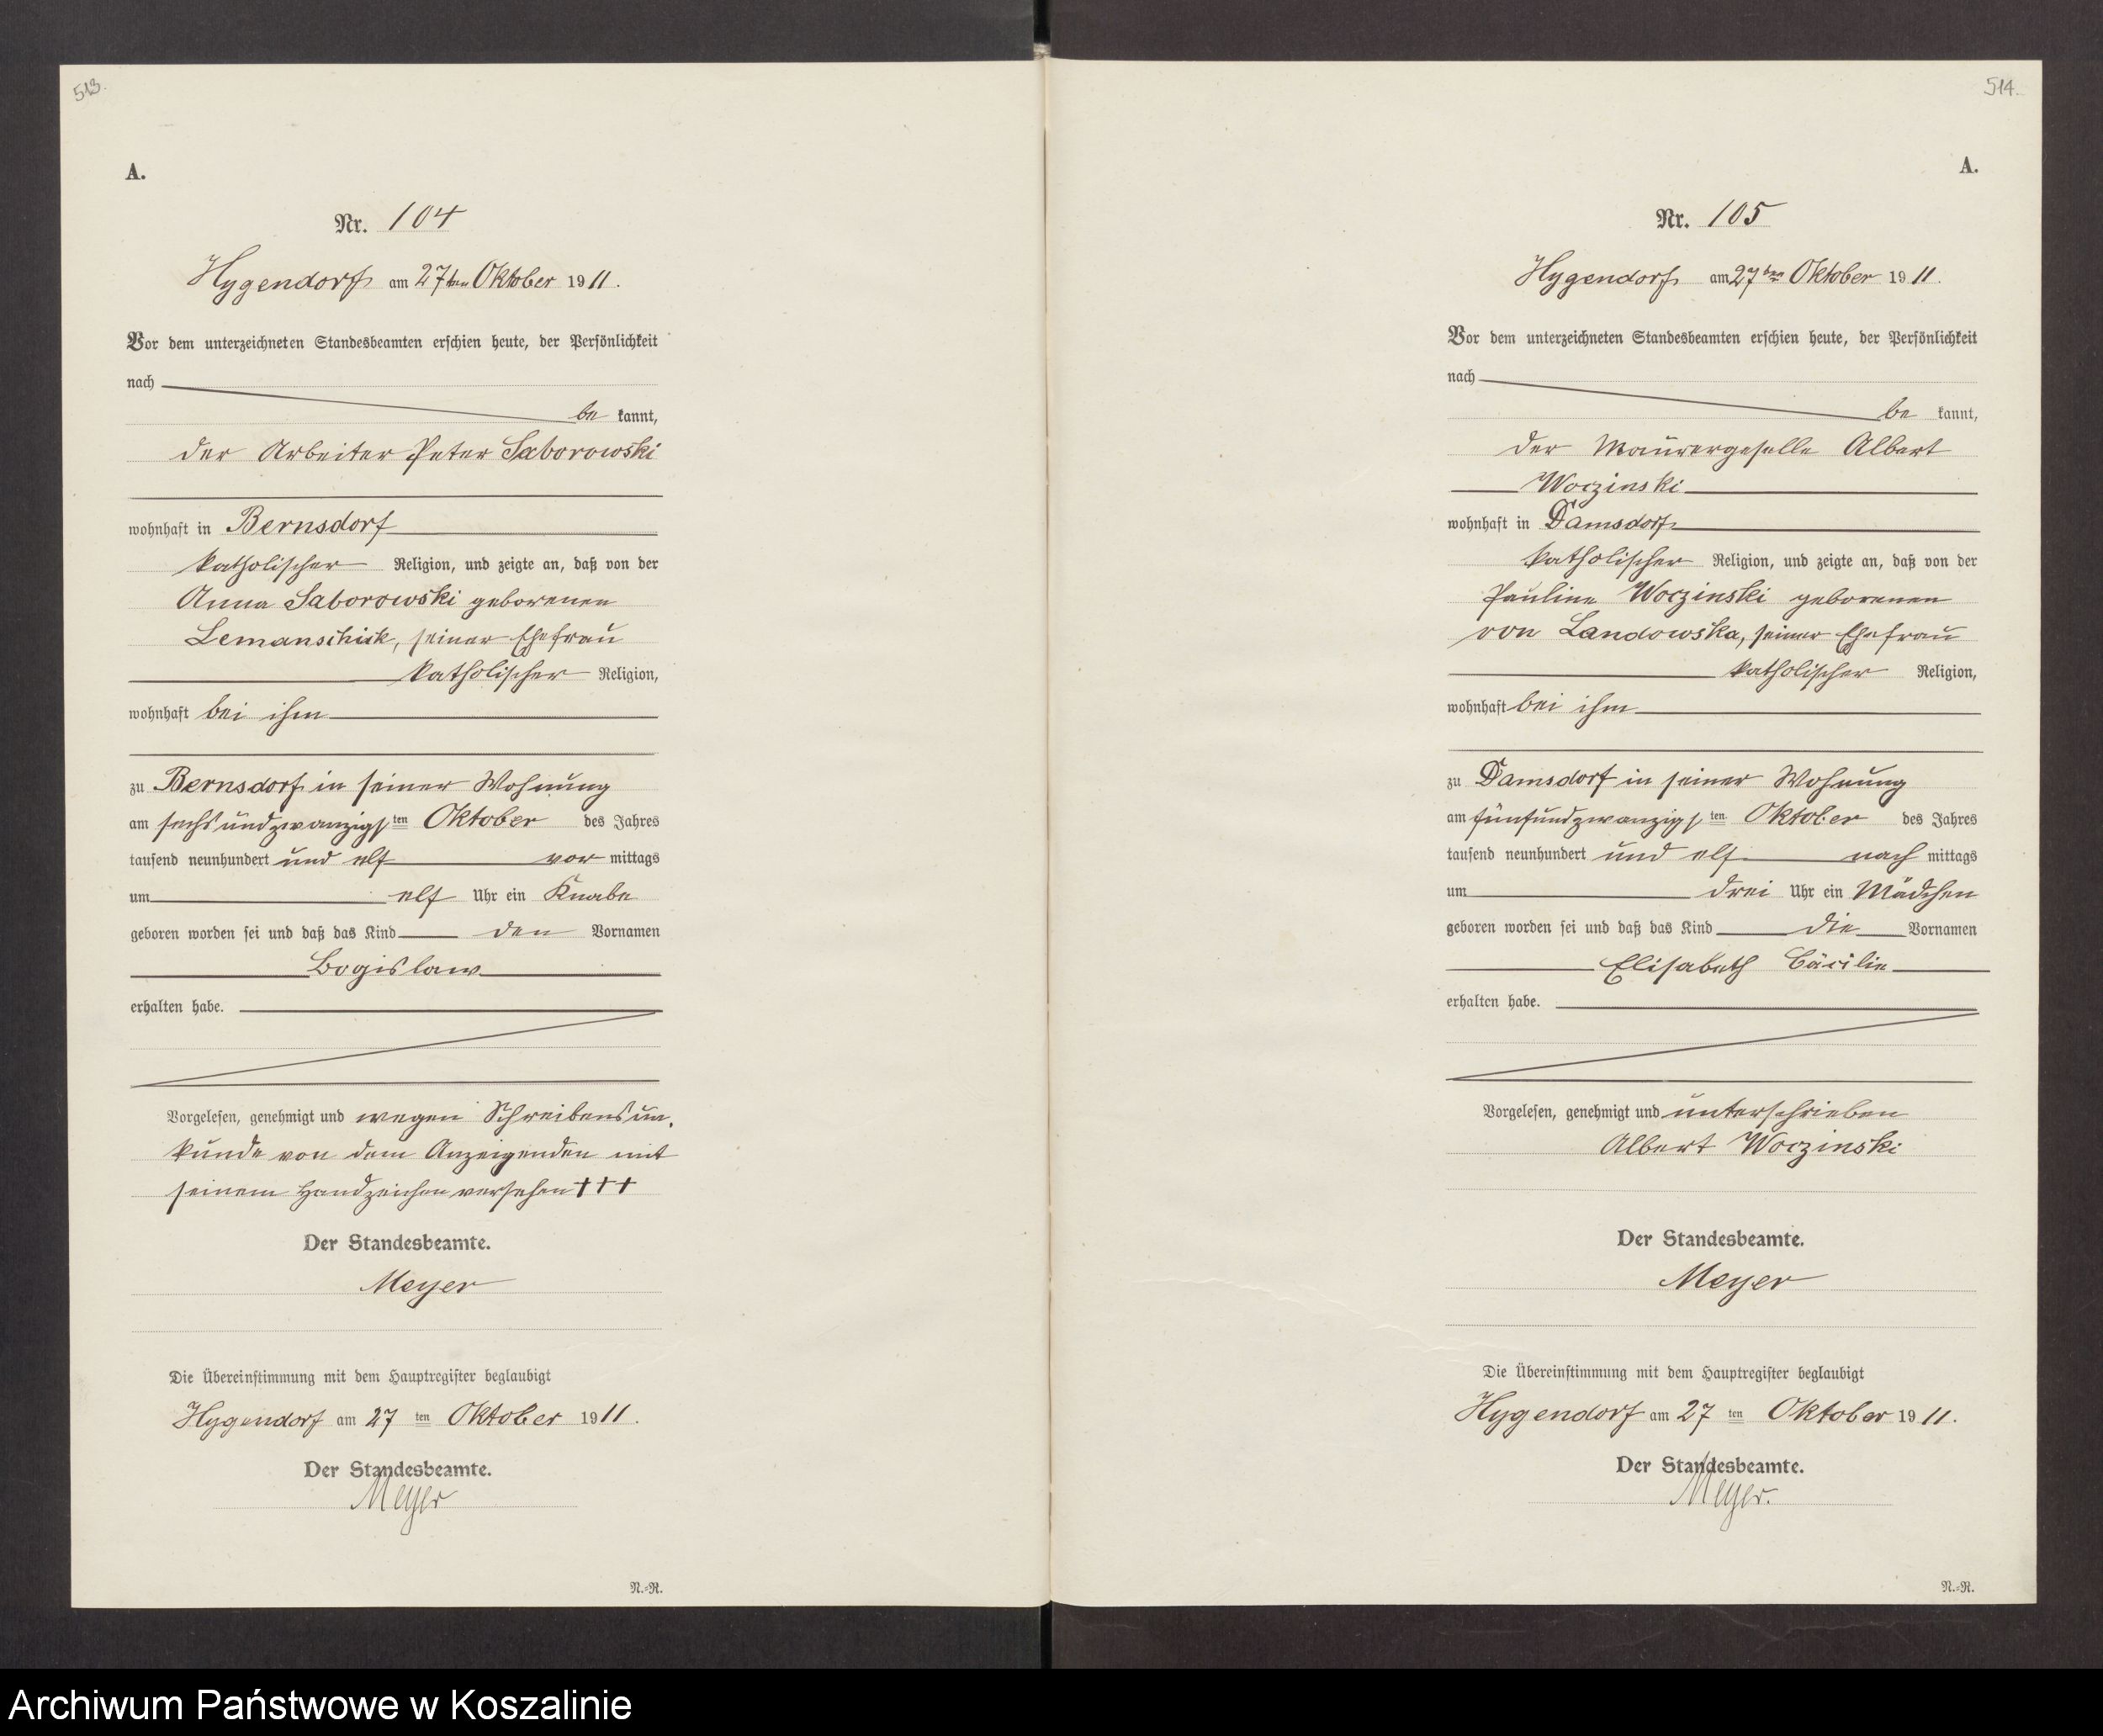 513.
A.
Nr. 104
Hygendorf am 27ten Oktober 1911.
Vor dem unterzeichneten Standesbeamten erschien heute, der Persönlichkeit
nach
be kannt,
der Arbeiter Peter Saborowski
wohnhaft in Bernsdorf
katholischer Religion, und zeigte an, daß von der
Anna Saborowski geborenen
Lemanschick, seiner Ehefrau
katholischer Religion,
wohnhaft bei ihm
zu Bernsdorf in seiner Wohnung
am sechsundzwanzigsten Oktober des Jahres
tausend neunhundert und elf vor mittags
um elf Uhr ein Knabe
geboren worden sei und daß das Kind den Vornamen
Bogislaw
erhalten habe.
Vorgelesen, genehmigt und wegen Schreibensun-
kunde von dem Anzeigenden mit
seinem Handzeichen versehen +++
Der Standesbeamte.
Meyer
Die Übereinstimmung mit dem Hauptregister beglaubigt
Hygendorf am 27 ten Oktober 1911.
Der Standesbeamte.
Meyer
N.-R.
514.
A.
Nr. 105
Hygendorf am 27ten Oktober 1911.
Vor dem unterzeichneten Standesbeamten erschien heute, der Persönlichkeit
nach
be kannt,
der Maurergeselle Albert
Woczinski
wohnhaft in Damsdorf
katholischer Religion, und zeigte an, daß von der
Pauline Woczinski geborenen
von Landowska, seiner Ehefrau
katholischer Religion,
wohnhaft bei ihm
zu Damsdorf in seiner Wohnung
am fünfundzwanzigsten Oktober des Jahres
tausend neunhundert und elf nach mittags
um drei Uhr ein Mädchen
geboren worden sei und daß das Kind die Vornamen
Elisabeth Cäcilie
erhalten habe.
Vorgelesen, genehmigt und unterschrieben
Albert Woczinski
Der Standesbeamte.
Meyer
Die Übereinstimmung mit dem Hauptregister beglaubigt
Hygendorf am 27 ten Oktober 1911.
Der Standesbeamte.
Meyer.
N.-R.
Archiwum Państwowe w Koszalinie